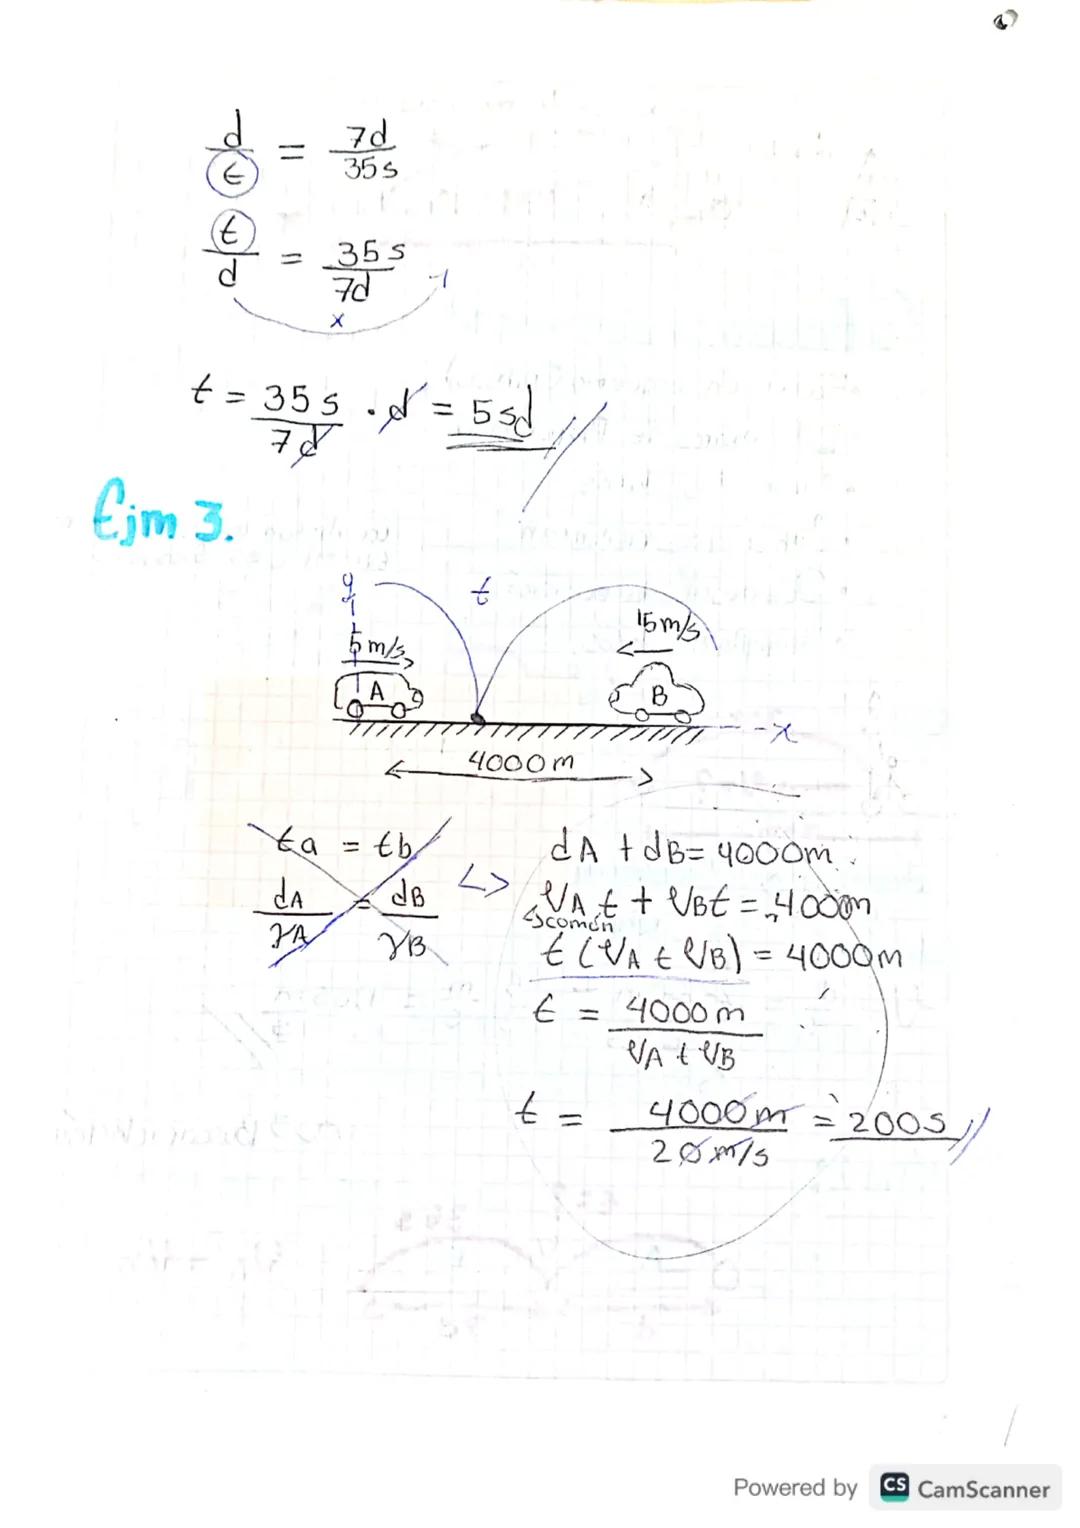 d/t = 7d/35s
t/d = 35s/7d
x
t = 35s/7d . d = 5sd
Ejm 3.
y t
5 m/s 15 m/s
A B
x
4000m
ta = tb <> dA + dB = 4000m
dA/γA = dB/γB
VA t + VBt = 4000m
común
t (VA + VB) = 4000m
t = 4000m/VA + VB
t = 4000m/20 m/s = 200s
Powered by CS CamScanner